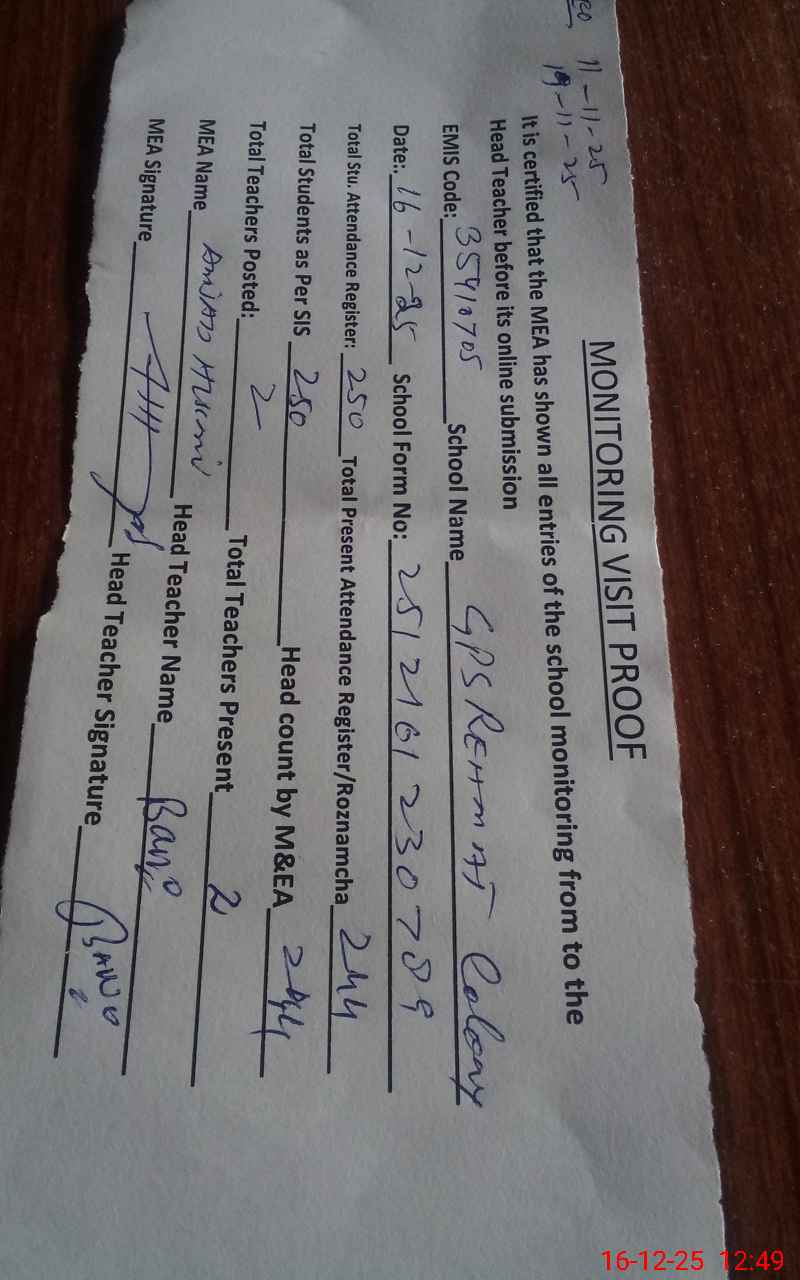 11-11-25
19-11-25
MONITORING VISIT PROOF
It is certified that the MEA has shown all entries of the school monitoring from to the
Head Teacher before its online submission
EMIS Code: 35410705 School Name GPS REHMAT Colony
Date: 16-12-25 School Form No: 2512161230789
Total Stu. Attendance Register: 250 Total Present Attendance Register/Roznamcha 244
Total Students as Per SIS 250 Head count by M&EA 244
Total Teachers Posted: 2 Total Teachers Present 2
MEA Name AMJAD Head Teacher Name Bano
MEA Signature Head Teacher Signature Bano
16-12-25 12:49